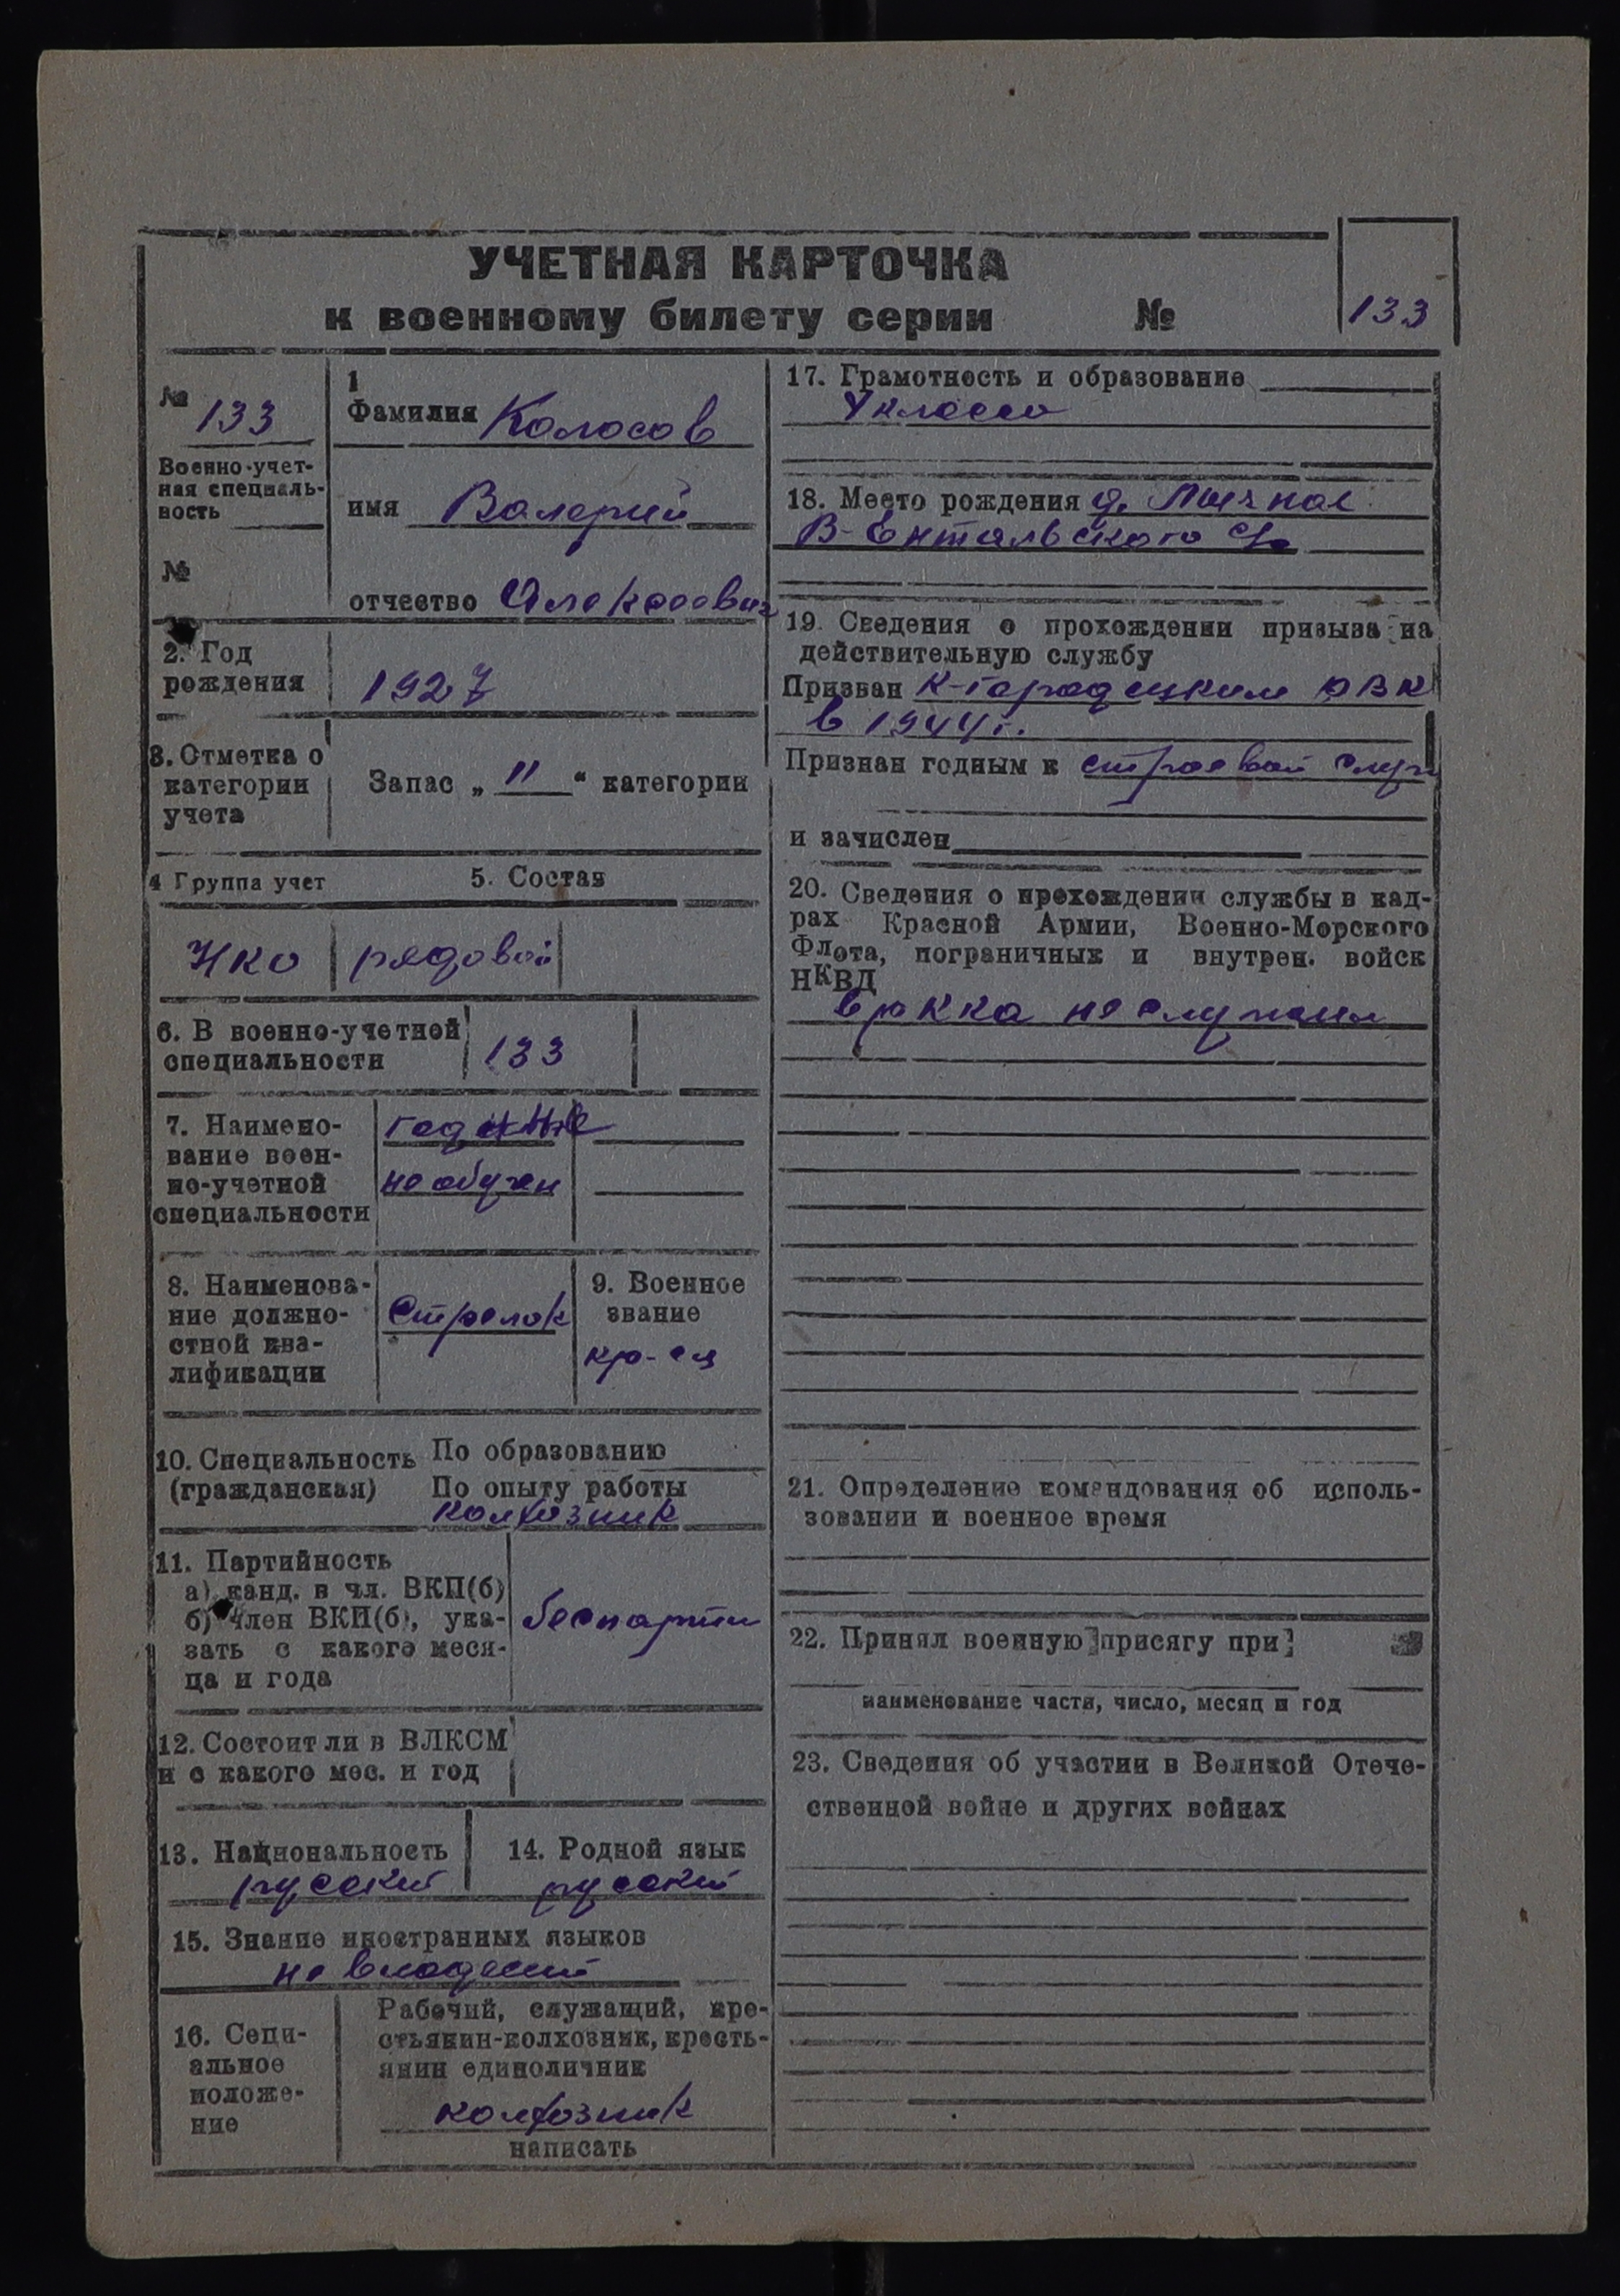 УЧЕТНАЯ КАРТОЧКА
к военному билету серии №
133
№ 133
Военно-учет-
ная специаль-
ность
№
1
Фамилия Колосов
имя Валерий
отчество Алексеевич
2. Год
рождения
1927
3. Отметка о
категории
учета
Запас „ II “ категории
4 Группа учет
5. Состав
НКО
рядовой
6. В военно-учетной
специальности
133
7. Наимено-
вание воен-
но-учетной
специальности
годные
необучен
8. Наименова-
ние должно-
стной ква-
лификации
Стрелок
9. Военное
звание
кр-ец
10. Специальность
(гражданская)
По образованию
По опыту работы
колхозник
11. Партийность
а) канд. в чл. ВКП(б)
б) член ВКП(б), ука-
зать с какого меся-
ца и года
беспартии
12. Состоит ли в ВЛКСМ
и с какого мес. и год
13. Национальность
русский
14. Родной язык
русский
15. Знание иностранных языков
не владеет
16. Соци-
альное
положе-
ние
Рабочий, служащий, кре-
стьянин-колхозник, кресть-
янин единоличник
колхозник
написать
17. Грамотность и образование
4 класса
18. Место рождения д.
В-Ентальского с/с
19. Сведения о прохождении призыва на
действительную службу
Призван К-Городецким РВК
в 1944 г.
Признан годным к строевой служ
и зачислен
20. Сведения о прохождении службы в кад-
рах Красной Армии, Военно-Морского
Флота, пограничных и внутрен. войск
НКВД
в РККА не служил
21. Определение командования об исполь-
зовании и военное время
22. Принял военную присягу при
наименование части, число, месяц и год
23. Сведения об участии в Великой Отече-
ственной войне и других войнах